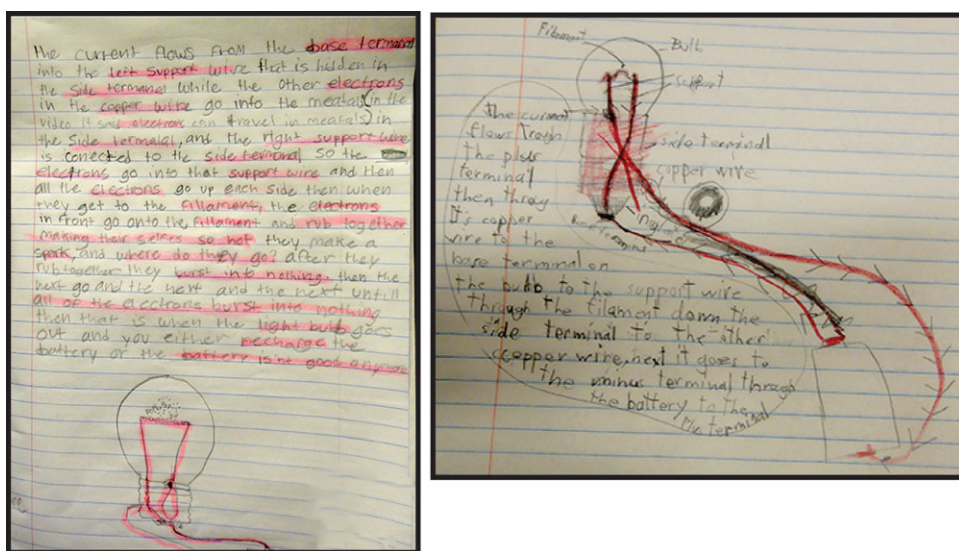 the current flows from the base termanal
into the left support wire that is hidden in
the side termanal while the other electrons
in the copper wire go into the meatals (in the
video it said electrons can travel in meatals) in
the side termalal, and the right support wire
is conected to the side termonal so the
electrons go into that support wire and then
all the electrons go up each side then when
they get to the fillament, the electrons
in front go onto the fillament and rub together
making their selfes so hot they make a
spark, and where do they go? after they
rub together they burst into nothing, then the
next go and the next and the next untill
all of the electrons burst into nothing
then that is when the light bulb goes
out and you either recharge the
battery or the battery isnt good anymore
Filament
Bulb
support
side terminal
copper wire
the current
flows trogh
the plus
terminal
then throy
It's copper
wire to the
base terminal on
the bulb to the support wire
through the filament down the
side terminal to the other
copper wire, next it goes to
the minus terminal through
the battery to the
plus terminal